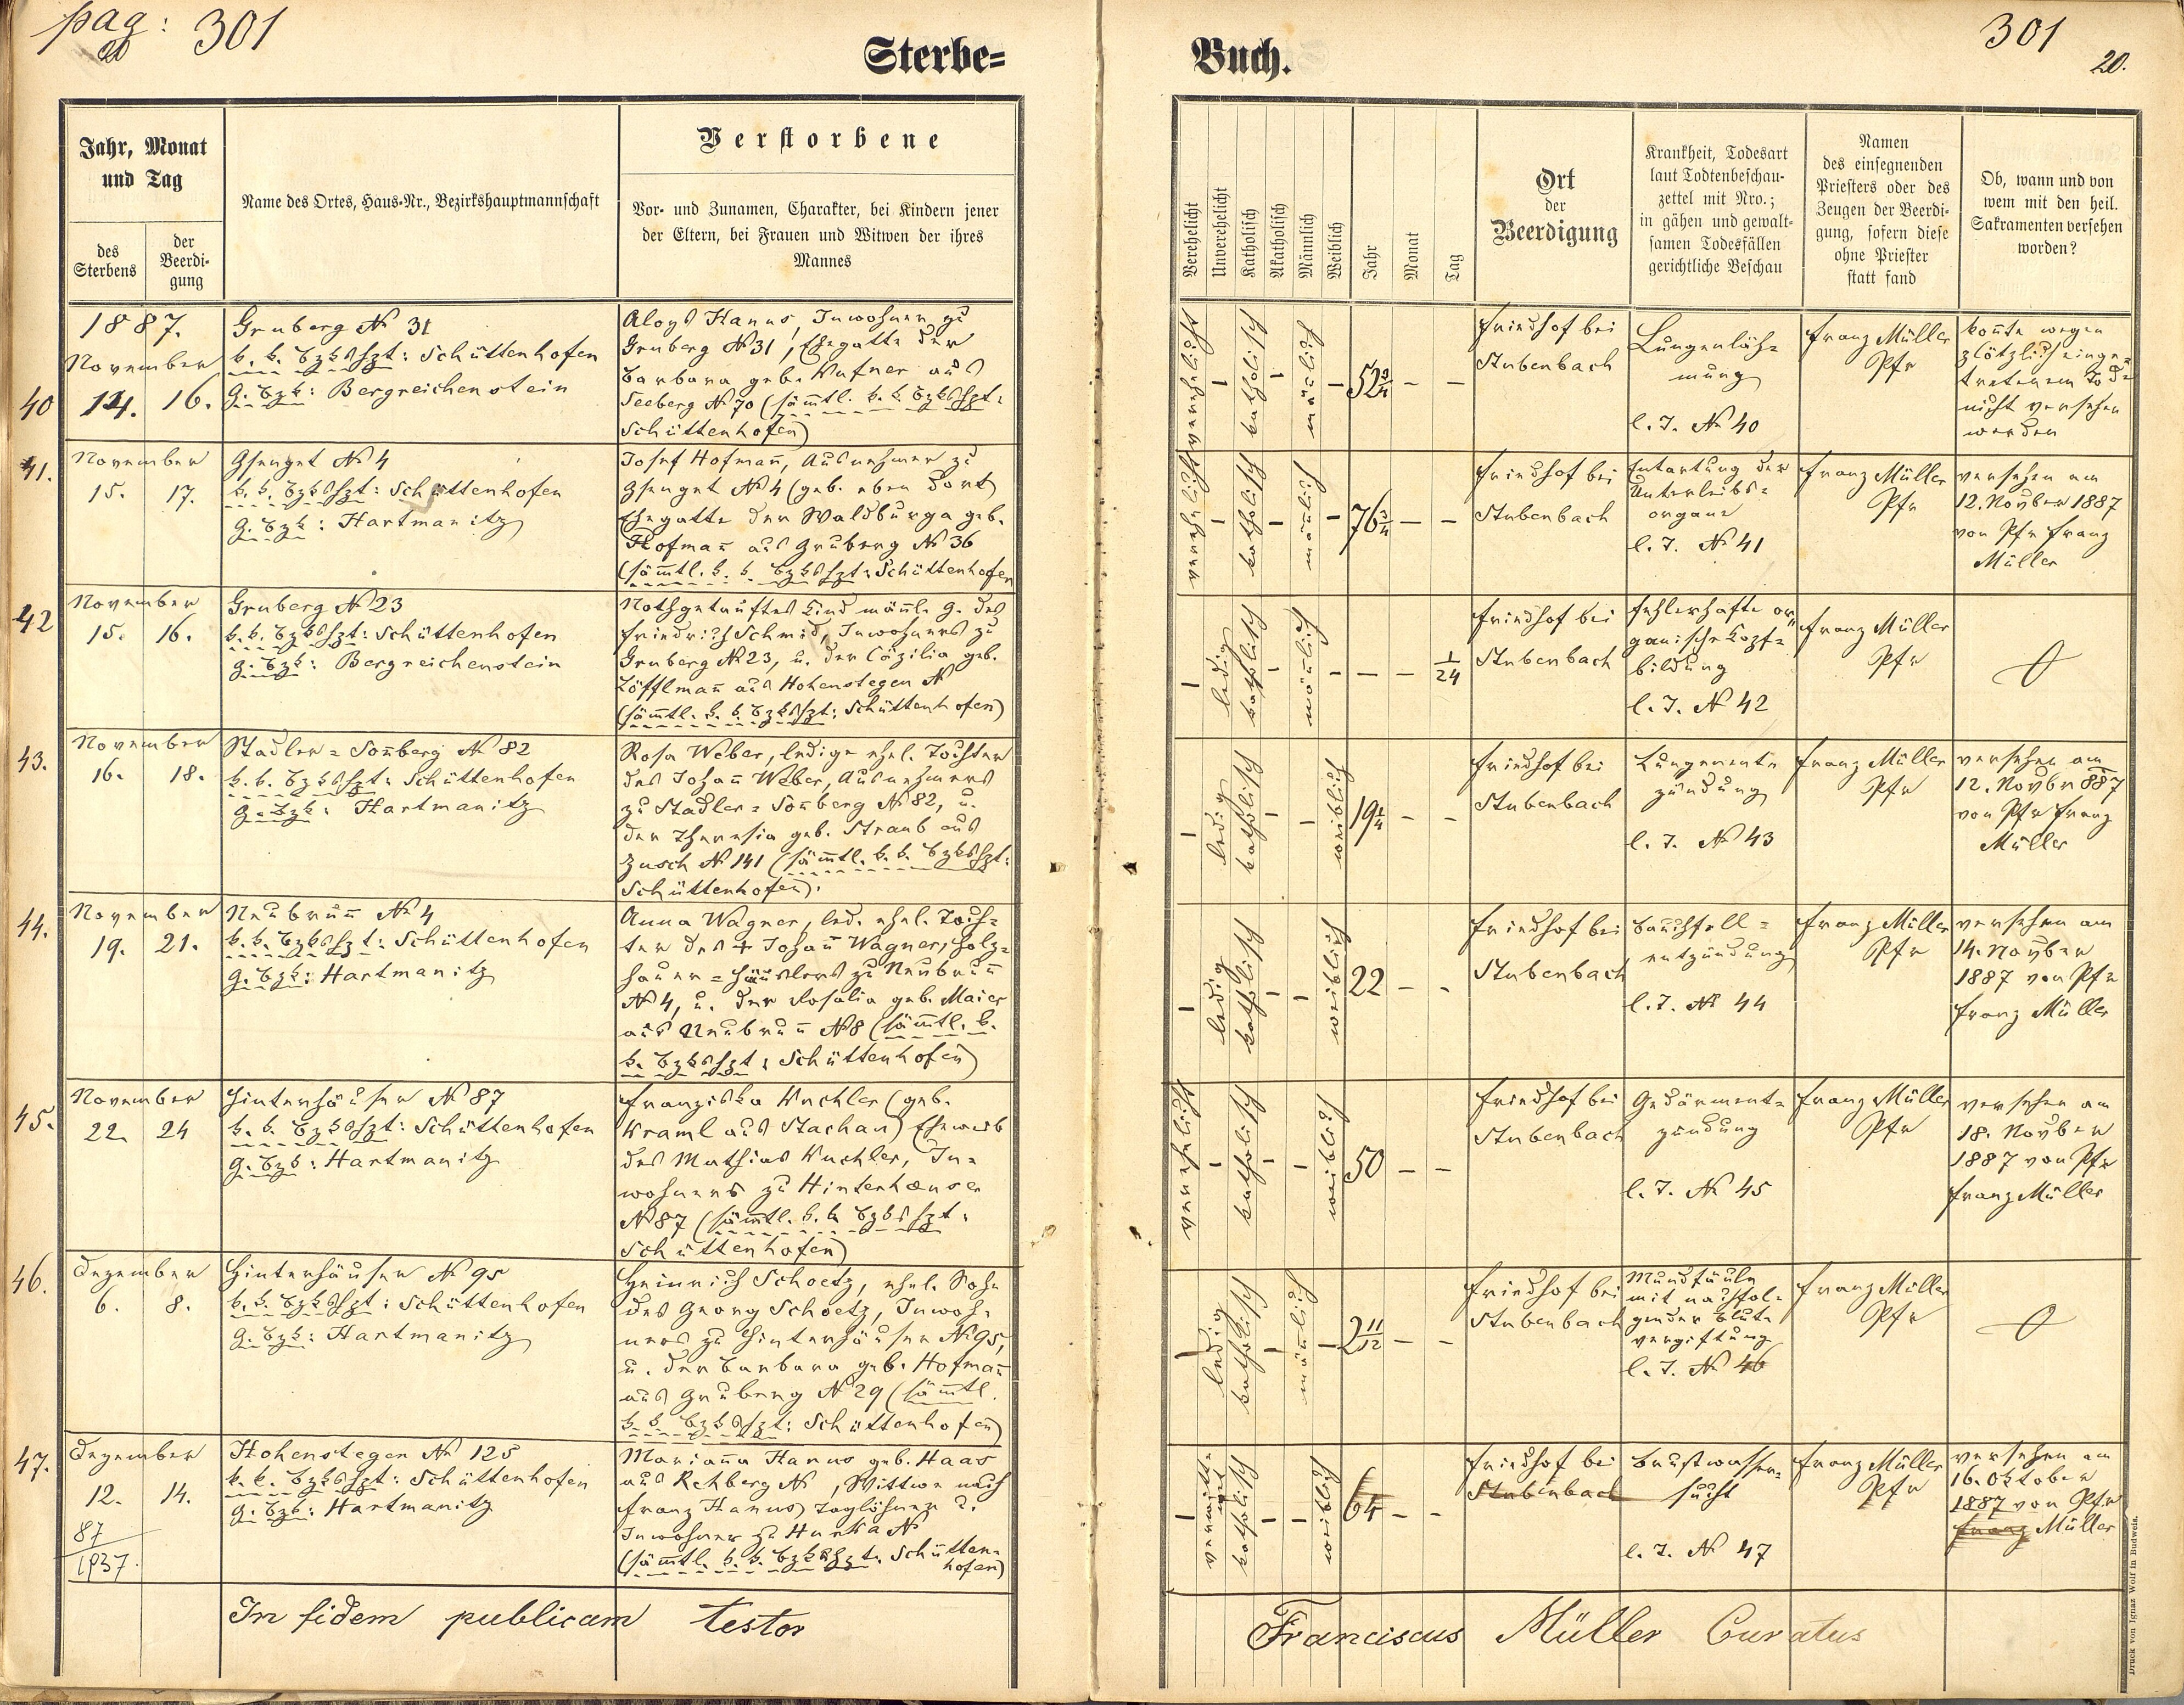 pag: 301
20
Sterbe=
Jahr, Monat
und Tag
des
Sterbens
der
Beerdi-
gung
Name des Ortes, Haus-Nr., Bezirkshauptmannschaft
Verstorbene
Vor- und Zunamen, Charakter, bei Kindern jener
der Eltern, bei Frauen und Witwen der ihres
Mannes
1887.
November
40
14. 16.
Gruberg № 31
k. k. Bzkshpt: Schüttenhofen
G. Bzk: Bergreichenstein
Aloys Hanus, Inwohner zu
Gruberg № 31, Ehegatte der
Barbara geb. aus
Seeberg № 70 (sämtl. k. k. Bzkshpt:
Schüttenhofen)
41.
November
15. 17.
Gsenget № 4
k. k. Bzkshpt: Schüttenhofen
G. Bzk: Hartmanitz
Josef Hofmañ, Ausnehmer zu
Gsenget № 4 (geb. eben dort)
Ehegatte der Waldburga geb.
Hofmañ aus Gruberg № 36
(sämtl. k. k. Bzkshpt: Schüttenhofen
42
November
15. 16.
Gruberg № 23
k. k. Bzkshpt: Schüttenhofen
G. Bzk: Bergreichenstein
Nothgetauftes Kind mäñl. G. des
Friedrich Schmid, Inwohners zu
Gruberg № 23, u. der Cäzilia geb.
Löfflmañ aus Hohenstegen №
(sämtl. k. k. Bzkshpt: Schüttenhofen)
43.
November
16. 18.
Stadler=Soñberg № 82
k. k. Bzkshpt: Schüttenhofen
G. Bzk: Hartmanitz
Rosa Weber, ledige ehel. Tochter
des Johañ Weber, Ausnehmers
zu Stadler=Soñberg № 82, u.
der Theresia geb. Straub aus
Zusch № 141 (sämtl. k. k. Bzkshpt:
Schüttenhofen).
44.
November
19. 21.
Neubruñ № 4
k. k. Bzkshpt: Schüttenhofen
G. Bzk: Hartmanitz
Anna Wagner, led. ehel. Toch=
ter des + Johañ Wagner, Holz=
hauer=Häuslers zu Neubruñ
№ 4, u. der Rosalia geb. Maier
aus Neubruñ № 8 (sämtl. k.
k. Bzkshpt: Schüttenhofen)
45.
November
22. 24
Hinterhäuser № 87
k. k. Bzkshpt: Schüttenhofen
G. Bzk: Hartmanitz
Franziska Wuchler (geb.
Kraml aus Stachau) Eheweib
des Mathias Wuchler, In=
wohners zu Hinterhäuser
№ 87 (sämtl. k. k. Bzkshpt:
Schüttenhofen)
46.
Dezember
6. 8.
Hinterhäuser № 95
k. k. Bzkshpt: Schüttenhofen
G. Bzk: Hartmanitz
Heinrich Schoetz, ehel. Sohn
des Georg Schoetz, Inwoh=
ners zu Hinterhäuser № 95,
u. der Barbara geb. Hofmañ
aus Gruberg № 29 (sämtl.
k. k. Bzkshpt: Schüttenhofen)
47.
Dezember
12. 14.
87
1937.
Hohenstegen № 125
k. k. Bzkshpt: Schüttenhofen
G. Bzk: Hartmanitz
Mariaña Hanus geb. Haas
aus Rehberg №, Wittwe nach
Franz Hanus, Taglöhner u.
Inwohner zu Hurka №
(sämtl. k. k. Bzkshpt: Schütten=
hofen)
In fidem publicam testor
301
20.
Buch.
Verehelicht
Unverehelicht
Katholisch
Akatholisch
Männlich
Weiblich
Jahr
Monat
Tag
Ort
der
Beerdigung
Krankheit, Todesart
laut Todtenbeschau-
zettel mit Nro.;
in gähen und gewalt-
samen Todesfällen
gerichtliche Beschau
Namen
des einsegnenden
Priesters oder des
Zeugen der Beerdi-
gung, sofern diese
ohne Priester
statt fand
Ob, wann und von
wem mit den heil.
Sakramenten versehen
worden?
verehelicht - katholisch - mäñlich - 52 3/4 - -
Friedhof bei
Stubenbach
Lungenläh=
mung
l. T. № 40
Franz Müller
Pfr
koñte wegen
plötzlich einge=
tretenem Tode
nicht versehen
werden
verehelicht - katholisch - mäñlich - 76 3/4 - -
Friedhof bei
Stubenbach
Entartung der
Unterleibs=
organe
l. T. № 41
Franz Müller
Pfr
versehen am
12. Novber 1887
von Pfr Franz
Müller
- ledig katholisch - mäñlich - - - 1/24
Friedhof bei
Stubenbach
Fehlerhafte or=
ganische Kopf=
bildung
l. T. № 42
Franz Müller
Pfr
- ledig katholisch - - weiblich 19 1/4 - -
Friedhof bei
Stubenbach
Lungenent=
zündung
l. T. № 43
Franz Müller
Pfr
versehen am
12. Novbr 887
von Pfr Franz
Müller
- ledig katholisch - - weiblich 22 - -
Friedhof bei
Stubenbach
Bauchfell=
entzündung
l. T. № 44
Franz Müller
Pfr
versehen am
14. Novber
1887 von Pfr
Franz Müller
verehelicht - katholisch - - weiblich 50 - -
Friedhof bei
Stubenbach
Gedärment=
zündung
l. T. № 45
Franz Müller
Pfr
versehen am
18. Novber
1887 von Pfr
Franz Müller
- ledig katholisch - mäñlich - 2 11/12 - -
Friedhof bei
Stubenbach
Mundfäule
mit nachfol=
gender Blut=
vergiftung
l. T. № 46
Franz Müller
Pfr
- verwitt=
wet katholisch - - weiblich 64 - -
Friedhof bei
Stubenbach
Brustwasser=
sucht
l. T. № 47
Franz Müller
Pfr
versehen am
16. Oktober
1887 von Pfr
Franz Müller
Franciscus Müller Curatus
Druck von Ignaz Wolf in Budweis.